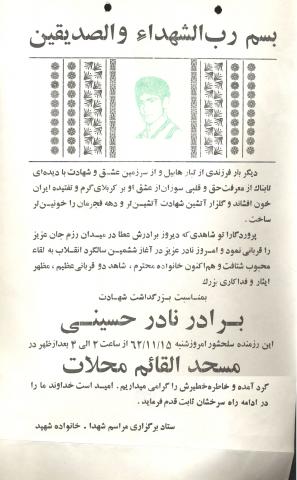 بسم رب الشهداء والصدیقین
دیگر بار فرزندی از تبار هابیل و از سرزمین عشق و شهادت با دیده‌ای
تابناک از معرفت حق و قلبی سوزان از عشق او بر کربلای گرم و تفتیده ایران
خون افشاند و گلزار آتشین شهادت آتشین‌تر و دهه فجرمان را خونین‌تر
ساخت.
پروردگارا تو شاهدی که دیروز برادرش عطا در میدان رزم جان عزیز
را قربانی نمود و امروز نادر عزیز در آغاز ششمین سالگرد انقلاب به لقاء
محبوب شتافت و هم‌اکنون خانواده محترم، شاهد دو قربانی عظیم، مظهر
ایثار و فداکاری بزرگ
بمناسبت بزرگداشت شهادت
برادر نادر حسینی
این رزمنده سلحشور امروز شنبه ۶۲/۱۱/۱۵ از ساعت ۲ الی ۴ بعدازظهر در
مسجد القائم محلات
گرد آمده و خاطره خطیرش را گرامی میداریم. امید است خداوند ما را
در ادامه راه سرخشان ثابت قدم فرماید.
ستاد برگزاری مراسم شهدا. خانواده شهید